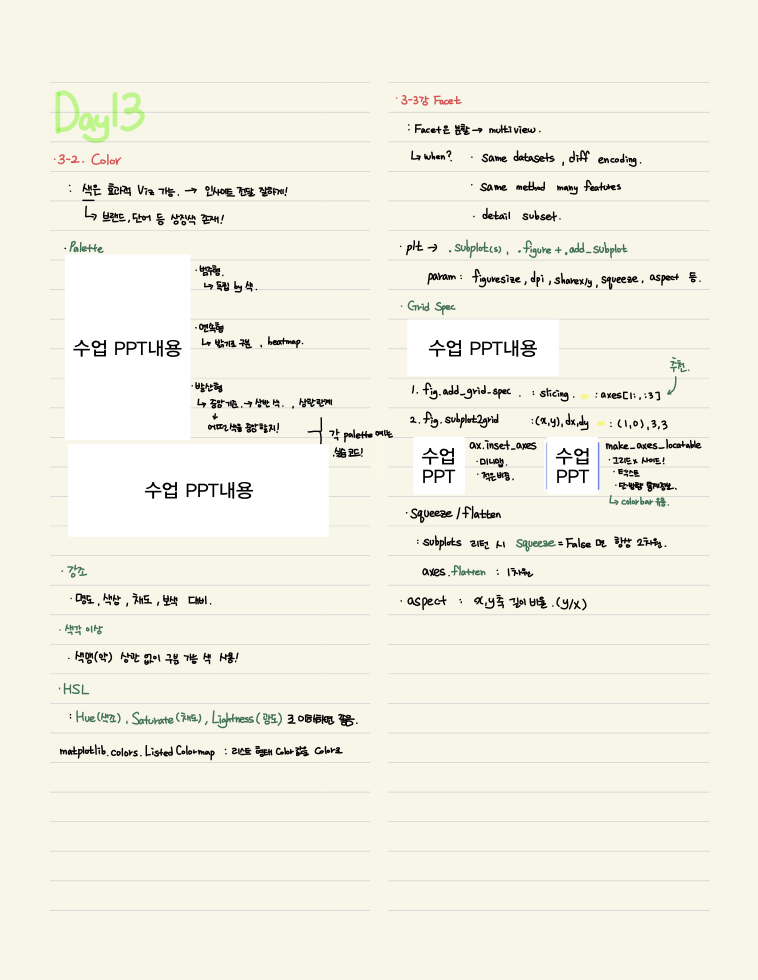 Day13
·3-2. Color
: 색은 효과적 Viz 가능. → 인사이트 전달 잘하게!
↳ 브랜드, 단어 등 상징색 존재!
·Palette
수업 PPT내용
·범주형.
↳ 독립 by 색.
·연속형
↳ 밝기로 구분 , heatmap.
·발산형
↳ 중앙기준.→ 상반 색. , 상관관계
+
어떤색을 중앙할지!
각 palette 예는
.실습코드!
수업 PPT내용
·강조
·명도, 색상, 채도, 보색 대비.
·색각 이상
·색맹(약) 상관 없이 구분 가능 색 사용!
·HSL
: Hue(색조), Saturate(채도), Lightness(광도) 로 이해하면 좋음.
matplotlib.colors.ListedColormap : 리스트 형태 Color값을 Color로
·3-3강 Facet
: Facet은 분할 → multiview.
↳ when? · same datasets, diff encoding.
· same method many features
· detail subset.
·plt → .subplot(s), .figure + .add_subplot
param : figuresize, dpi, sharex/y, squeeze, aspect 등.
·Grid Spec
수업 PPT내용
추천.
1. fig.add_grid_spec. : slicing. : axes[1:, :3]
2. fig.subplot2grid :(x,y),dx,dy : (1,0),3,3
수업 PPT
ax.inset_axes
·미니맵.
·적은비중.
수업 PPT
make_axes_locatable
·그리드x 사이드!
·텍스트
·단변량 통계정보.
↳ colorbar 유용.
·Squeeze/flatten
: subplots 리턴 시 squeeze=False 면 항상 2차원.
axes.flatten : 1차원
·aspect : x,y축 길이 비율.(y/x)